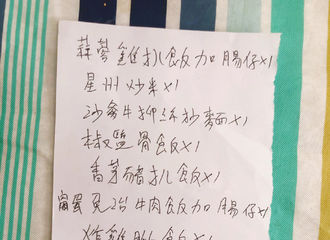 蒜蓉雞扒飯加腸仔x1
星州炒米x1
沙爹牛柳絲炒麵x1
椒鹽骨飯x1
香茅豬扒飯x1
窩蛋免治牛肉飯加腸仔x1
炸雞髀飯x1